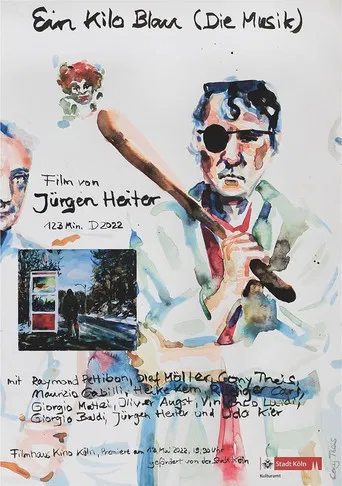 Ein Kilo Blau (Die Musik)
Film von
Jürgen Heiter
123 Min. D 2022
mit Raymond Pettibon, Olaf Möller, Cony Theis,
Maurizio Gabilli, Heike Kern,
Giorgio Oliver Augst, Vin
Giorgio Baldi, Jürgen Heiter und Udo Kier
Filmhaus Kino Köln, Premiere am Mai 2022, 19,30 Uhr
gefördert von der Stadt Köln
Stadt Köln
Kulturamt
Cony Theis